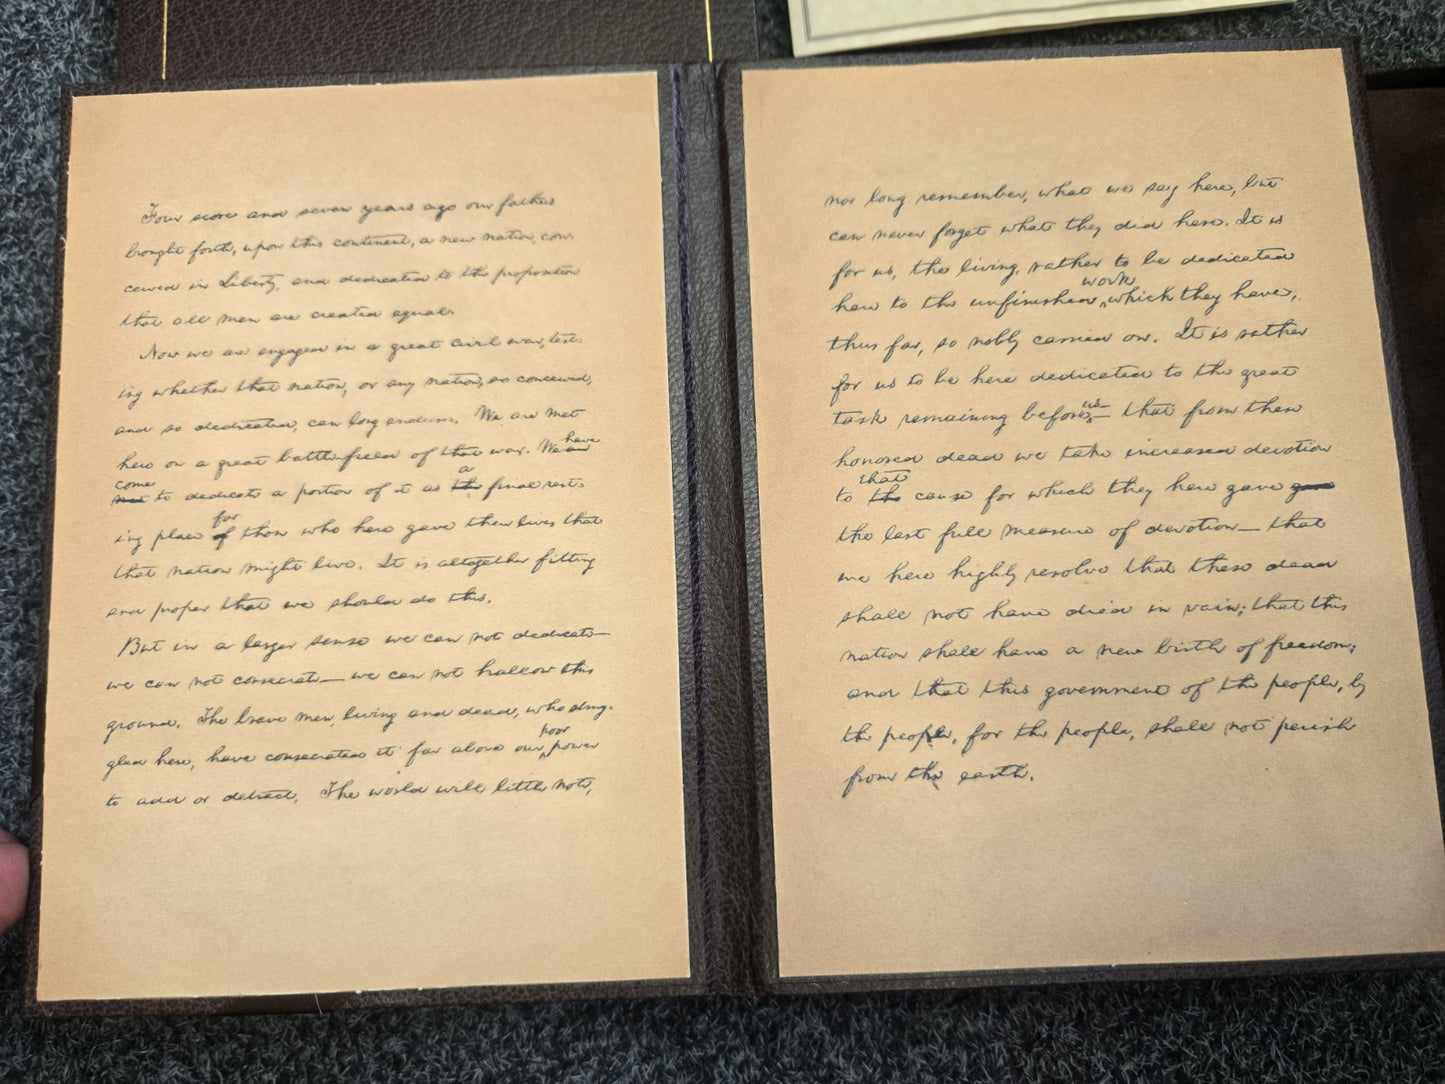 Four score and seven years ago our fathers
brought forth, upon this continent, a new nation, con-
ceived in Liberty, and dedicated to the proposition
that all men are created equal.
Now we are engaged in a great civil war, test-
ing whether that nation, or any nation, so conceived,
and so dedicated, can long endure. We are met
here on a great battle-field of that war. We are
have
come
met to dedicate a portion of it as the final rest-
a
ing place of those who here gave their lives that
for
that nation might live. It is altogether fitting
and proper that we should do this.
But in a larger sense we can not dedicate—
we can not consecrate— we can not hallow this
ground. The brave men, living and dead, who strug-
gled here, have consecrated it far above our power
poor
to add or detract. The world will little note,
nor long remember, what we say here, but
can never forget what they did here. It is
for us, the living, rather to be dedicated
work
here to the unfinished, which they have,
thus far, so nobly carried on. It is rather
for us to be here dedicated to the great
task remaining before us— that from these
honored dead we take increased devotion
that
to the cause for which they here gave gave
the last full measure of devotion— that
we here highly resolve that these dead
shall not have died in vain; that this
nation shall have a new birth of freedom;
and that this government of the people, by
the people, for the people, shall not perish
from the earth.